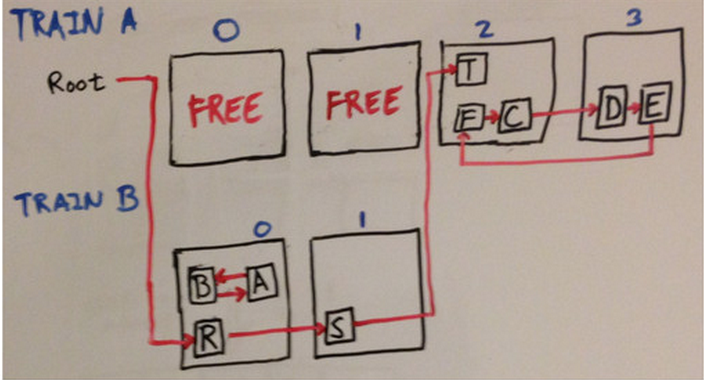 TRAIN A
0 1 2 3
Root
FREE FREE
T
F C D E
TRAIN B
0 1
B A
R S